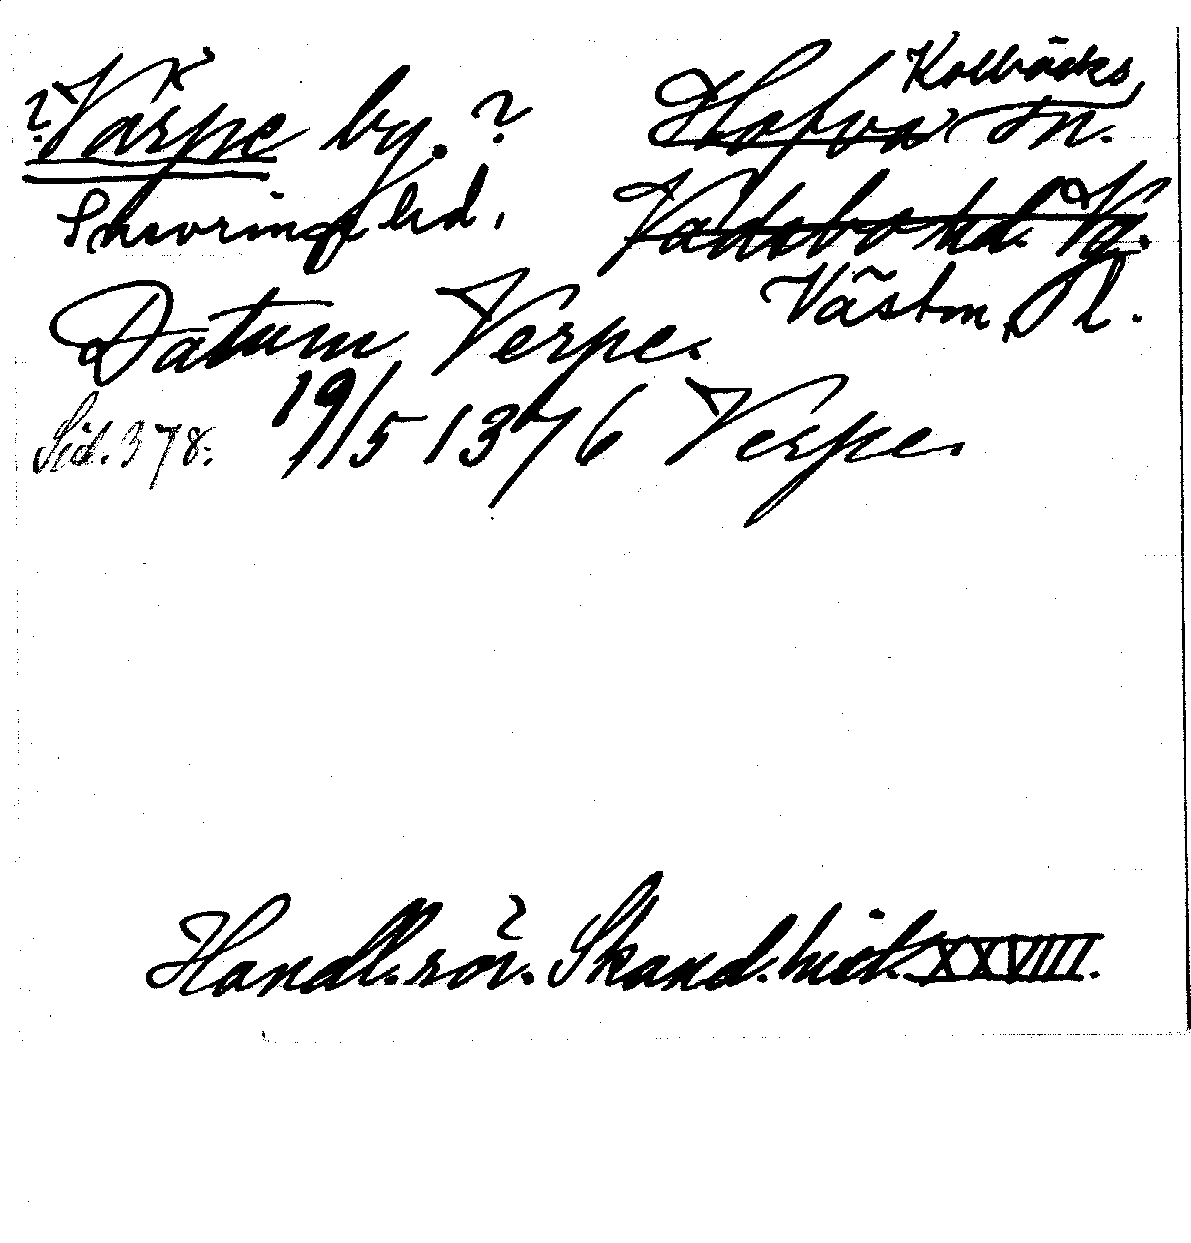 ? Värpe by. ? Hofva Kolbäcks sn.
Snevringe hd. Vadsbo hd. Vg.
Västm. l.
Datum Verpe.
Sid. 378. 19/5 1376 Verpe.
Handl. rör. Skand. hist. XXVIII.